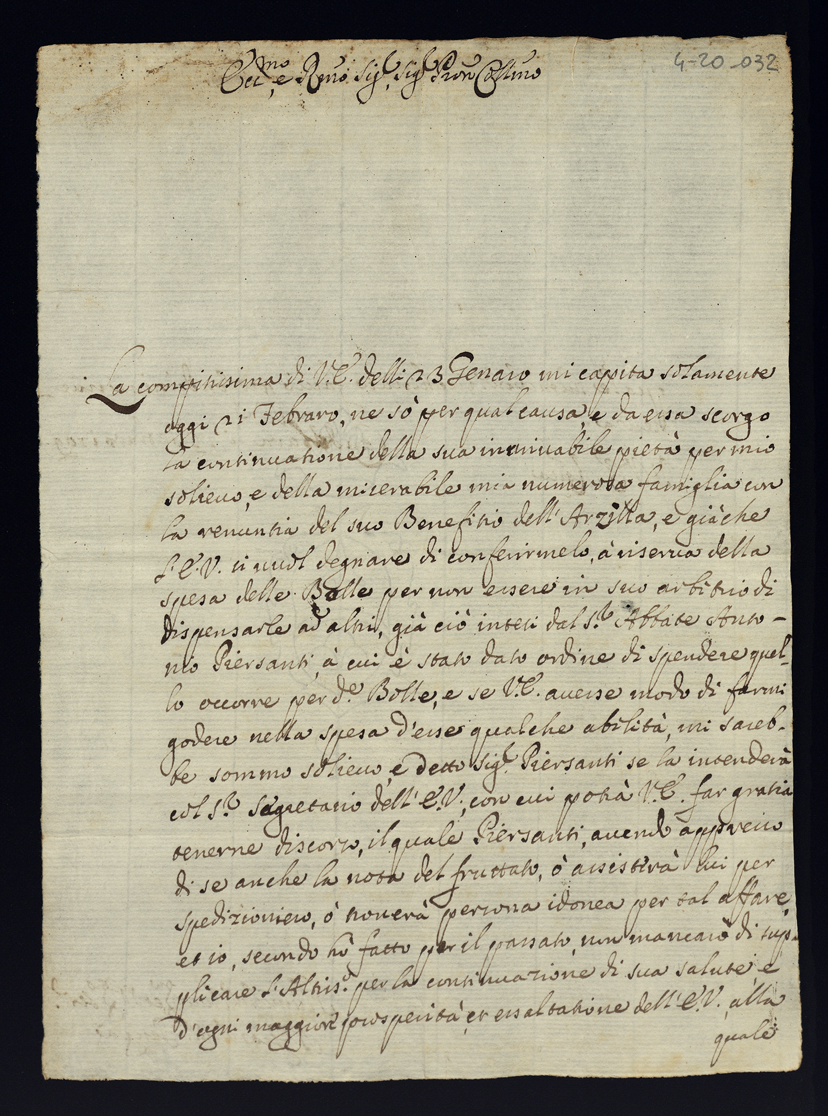 Ecc.mo e Rmo Sig.r, Sig.r Pron Coll.mo
4-20-032
La compitissima di V.E. delli 23 Genaro mi cappita solamente
oggi 21 Febraro, ne sò per qual causa, e da essa scorgo
la continuatione della sua innnivabile pietà per mio
solieuo, e della miserabile mia numerosa famiglia con
la renuntia del suo Benefitio dell'Arzilla, e già che
l'E.V. si uuol degnare di conferirmelo, à riserua della
spesa delle Bolle per non essere in suo arbitrio di
dispensarle ad altri, già ciò intesi dal S.r Abbate Anto-
nio Piersanti, à cui è stato dato ordine di spendere quel-
lo occorre per d.e Bolle, e se V.E. auesse modo di farmi
godere nella spesa d'esse qualche abilità, mi sareb-
be sommo solieuo, e detto Sig.r Piersanti se la intenderà
col S.r Segretario dell'E.V., con cui potrà V.E. far gratia
tenerne discorso, il quale Piersanti, auendo appresso
di se anche la nota del fruttato, ò assisterà lui per
spedizioniero, ò trouerà persona idonea per tal affare,
et io, secondo hò fatto per il passato, non mancarò di sup-
plicare l'Altis.o per la continuazione di sua salute, e
d'ogni maggiore prosperità, et essaltatione dell'E.V., alla
quale